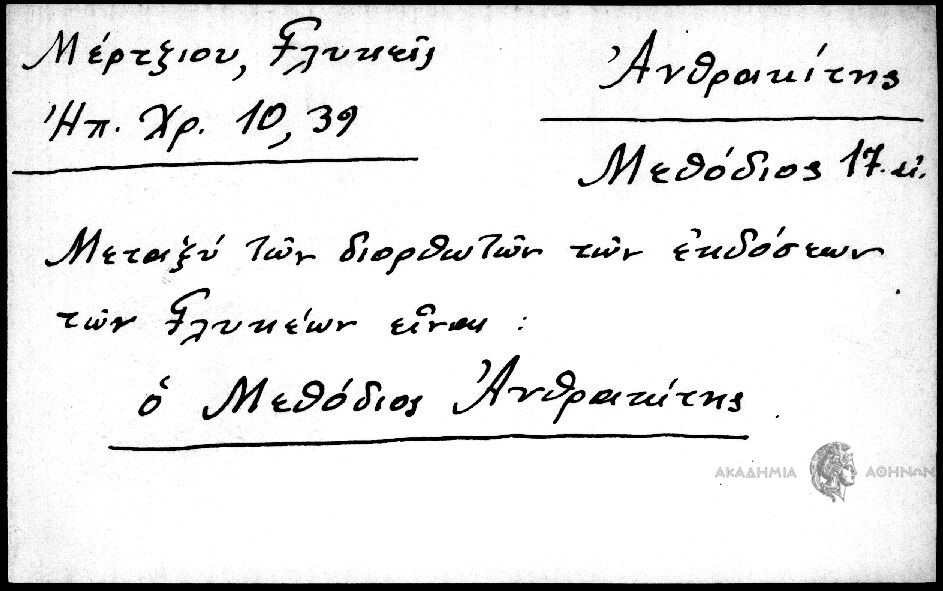 Μέρτζιου, Γλυκεῖς
Ἠπ. Χρ. 10, 39
Ἀνθρακίτης
Μεθόδιος 17. αἰ.
Μεταξύ τῶν διορθωτῶν τῶν ἐκδόσεων
τῶν Γλυκέων εἶναι :
ὁ Μεθόδιος Ἀνθρακίτης
ΑΚΑΔΗΜΙΑ ΑΘΗΝΩΝ